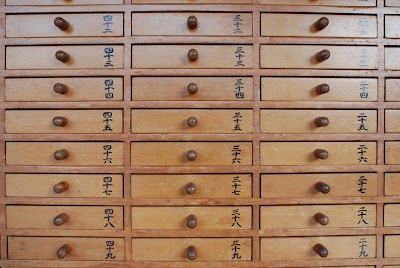 四十二
三十二
四十三
三十三
四十四
三十四
二十四
四十五
三十五
二十五
四十六
三十六
二十六
四十七
三十七
二十七
四十八
三十八
二十八
四十九
三十九
二十九